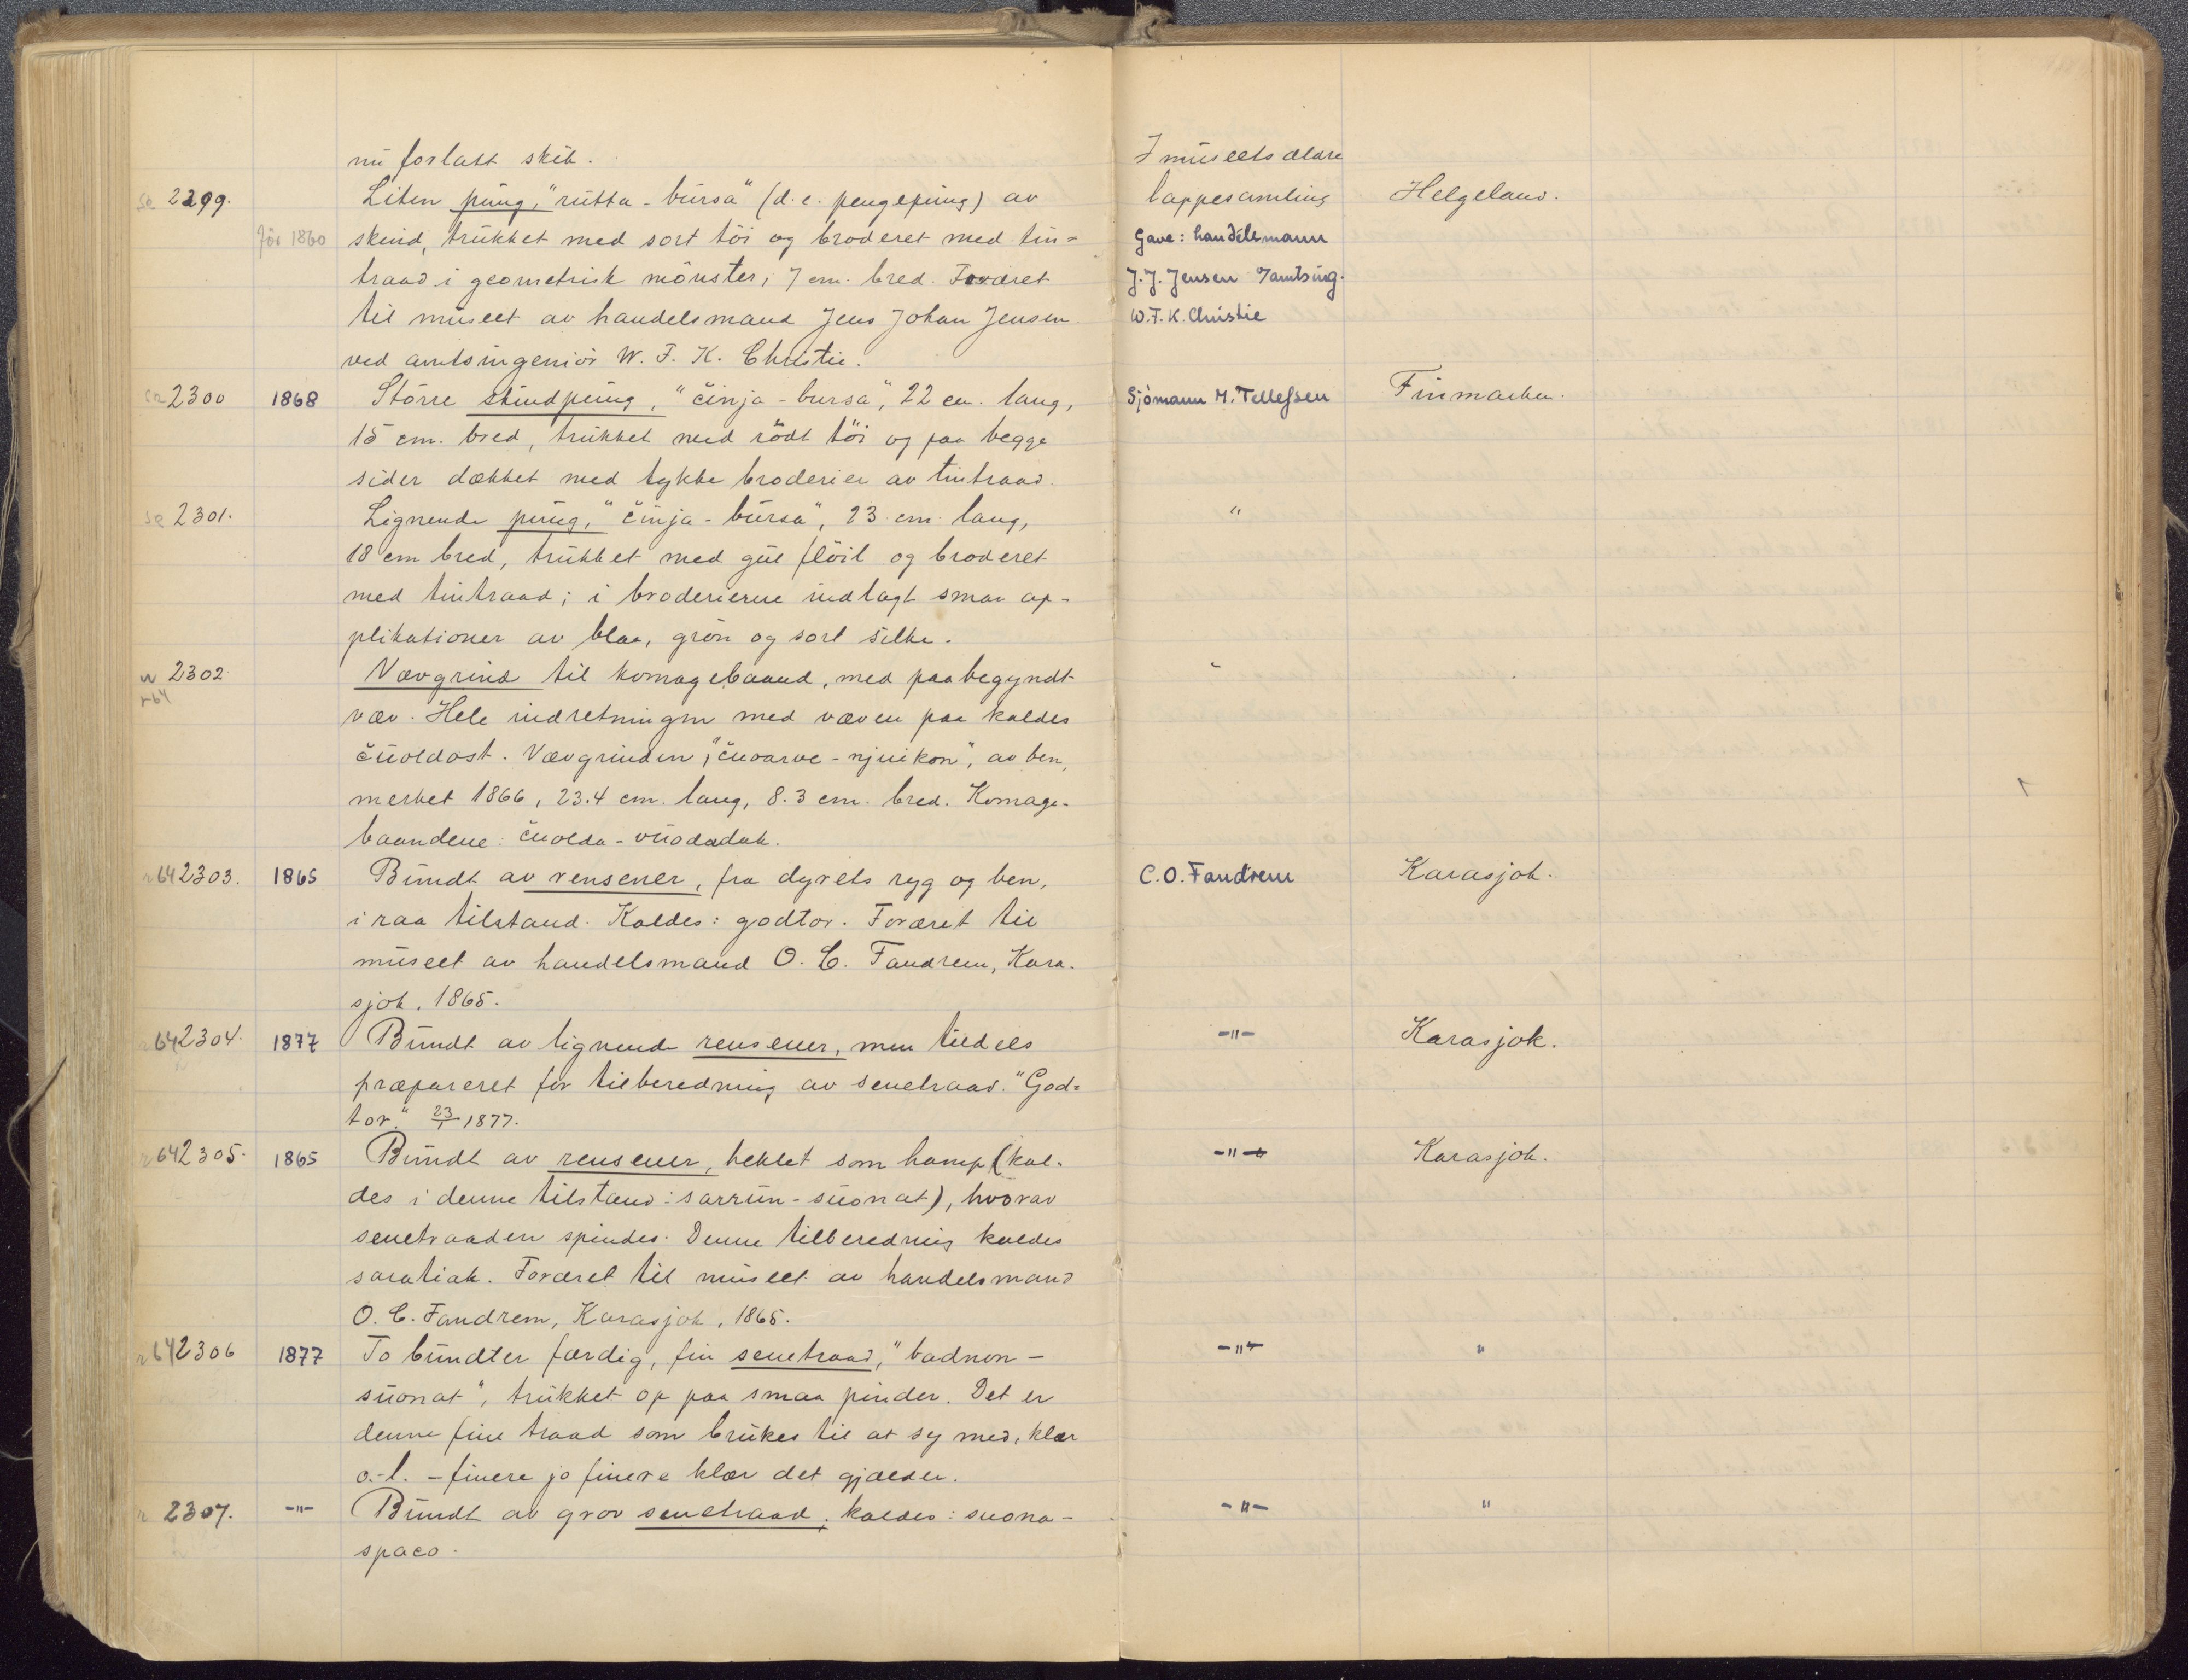 nu forlatt skib. I museets ældre
se 2299. Liten pung, "rutta-bursa" (d.e. pengepung) av lappesamling Helgeland.
før 1860 skind, trukket med sort töi og broderet med tin= Gave: handelsmann
traad i geometrisk mönster, 7 cm. bred. Foræret J. J. Jensen v/amtsing.
til museet av handelsmand Jens Johan Jensen W.F.K. Christie
ved amtsingeniör W. F. K. Christie.
se 2300 1868 Större skindpung, "činja-bursa", 22 cm. lang, Sjömann M. Tellefsen Finmarken.
15 cm. bred, trukket med rödt töi og paa begge
sider dækket med tykke broderier av tintraad.
se 2301. Lignende pung, "činja-bursa", 23 cm. lang, "
18 cm bred, trukket med gul flöil og broderet
med tintraad; i broderierne indlagt smaa ap-
plikationer av blaa, grön og sort silke.
w 2302 Vævgrind til komagebaand, med paabegyndt "
r64
væv. Hele indretningen med væven paa kaldes
čuoldast. Vævgrinden, "čuoarve-njuikon", av ben,
merket 1866, 23.4 cm. lang, 8.3 cm. bred. Komage-
baandene: čuolda-vuodadak.
r64 2303. 1865 Bundt av rensener, fra dyrets ryg og ben, C.O. Fandrem Karasjok.
i raa tilstand. Kaldes: godtor. Foræret til
museet av handelsmand O. C. Fandrem, Kara-
sjok, 1865.
r64 2304. 1877 Bundt av lignende rensener, men tildels -"- Karasjok.
præpareret for tilberedning av senetraad. "God=
tor." 23/1 1877.
r64 2305. 1865 Bundt av rensener, heklet som hamp (kal- -"- Karasjok.
des i denne tilstand: sarrun-suonat), hvorav
senetraaden spindes. Denne tilberedning kaldes
saratiak. Foræret til museet av handelsmand
O. C. Fandrem, Karasjok, 1865.
r64 2306 1877 To bundter færdig, fin senetraad, "badnon- -"- "
suonat", trukket op paa smaa pinder. Det er
denne fine traad som brukes til at sy med, klær
o.l. - finere jo finere klær det gjælder.
r 2307. -"- Bundt av grov senetraad, kaldes: suona- -"- "
spaco.